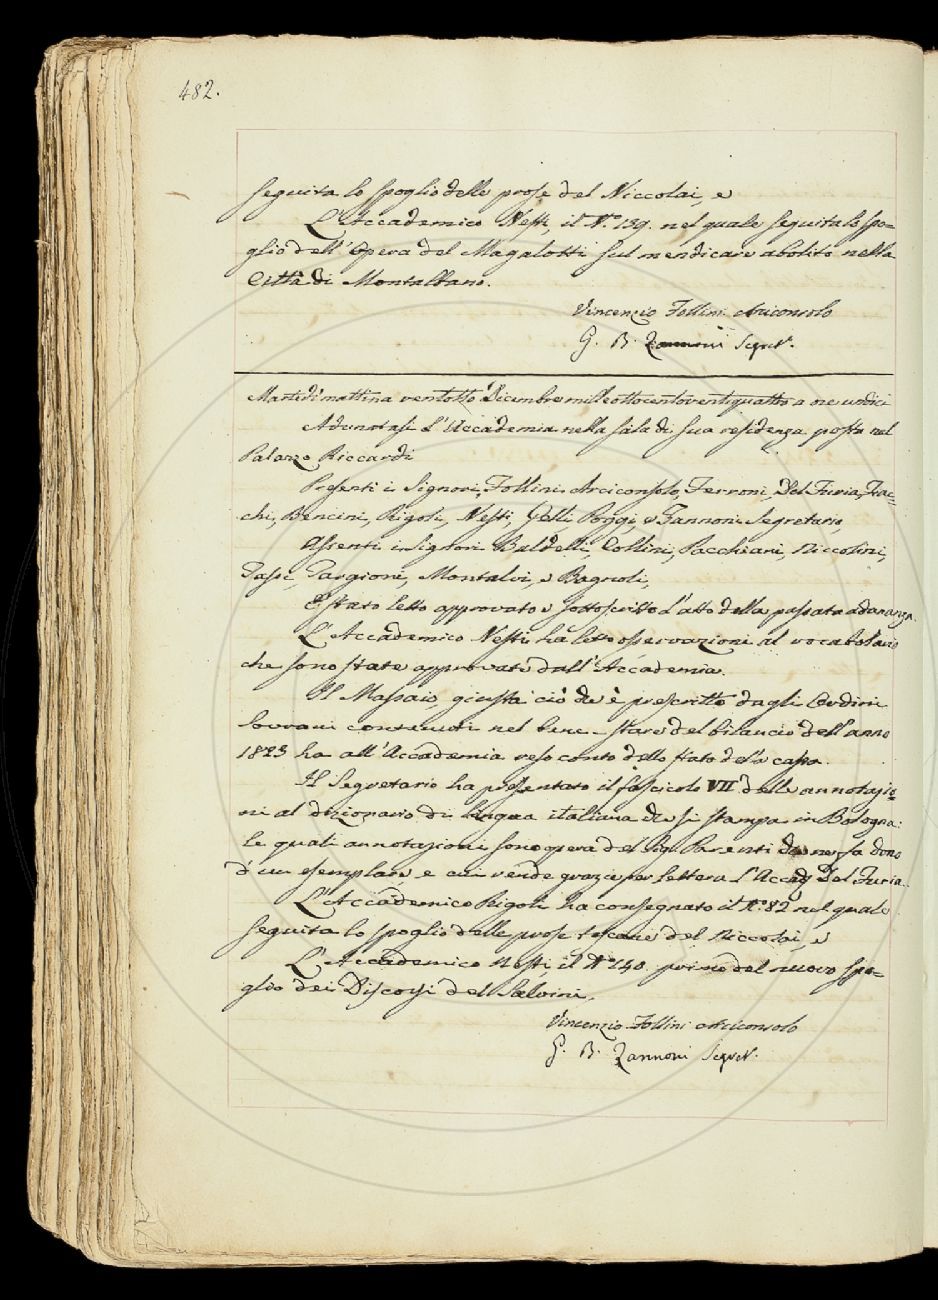 482.
seguita lo spoglio delle prose del Niccolai, e
L'Accademico Nesti, il N.º 139. nel quale seguita lo spo=
glio dell'Opera del Magalotti sul mendicare abolito nella
Città di Montalbano.
Vincenzio Follini Arciconsolo
G. B. Zannoni Segret.
Martedì mattina ventotto Dicembre mille ottocentoventiquattro a ore undici
Adunatasi L'Accademia nella sala di sua residenza posta nel
Palazzo Riccardi
Presenti i Signori, Follini Arciconsolo, Ferroni, Del Furia, Fiac=
chi, Bencini, Rigoli, Nesti, Gelli, Poggi, e Zannoni Segretario,
Assenti i Signori Baldelli, Collini, Pacchiani, Niccolini,
Tassi, Targioni, Montalvi, e Bagnoli,
È stato letto approvato e sottoscritto l'atto della passata adunanza.
L'Accademico Nesti ha letto osservazioni al vocabolario
che sono state approvate dall'Accademia.
Il Massaio, giusta ciò che è prescritto dagli Ordini
Sovrani contenuti nel bene-stare del bilancio dell'anno
1823 ha all'Accademia reso conto dello stato della cassa.
Il Segretario ha presentato il fascicolo VII delle annotazio=
ni al dizionario di lingua italiana che si stampa in Bologna:
le quali annotazioni sono opera del Sig. Parenti che ne fa dono
d'un esemplare e cui rende grazie per lettera l'Accad. Del Furia.
L'Accademico Rigoli ha consegnato il N.º 82 nel quale
seguita lo spoglio delle prose toscane del Niccolai, e
L'Accademico Nesti il N.º 140. primo del nuovo spo=
glio dei Discorsi del Salvini.
Vincenzio Follini Arciconsolo
G. B. Zannoni Segret.